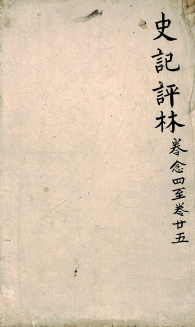 史記評林
卷念四至卷廿五